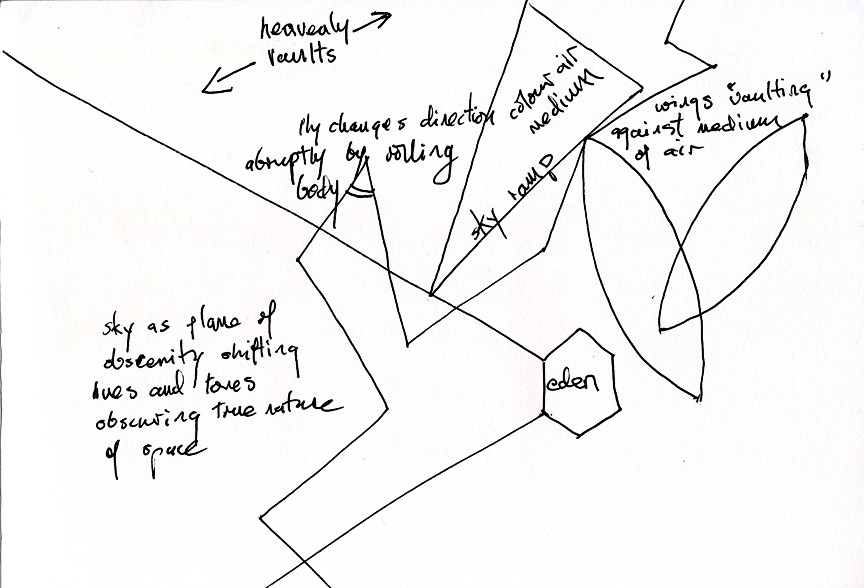 heavenly
vaults
fly changes direction
abruptly by rolling
body
colour air
medium
sky ramp
wings "vaulting"
against medium
of air
sky as plane of
obscenity shifting
hues and tones
obscuring true nature
of space
eden